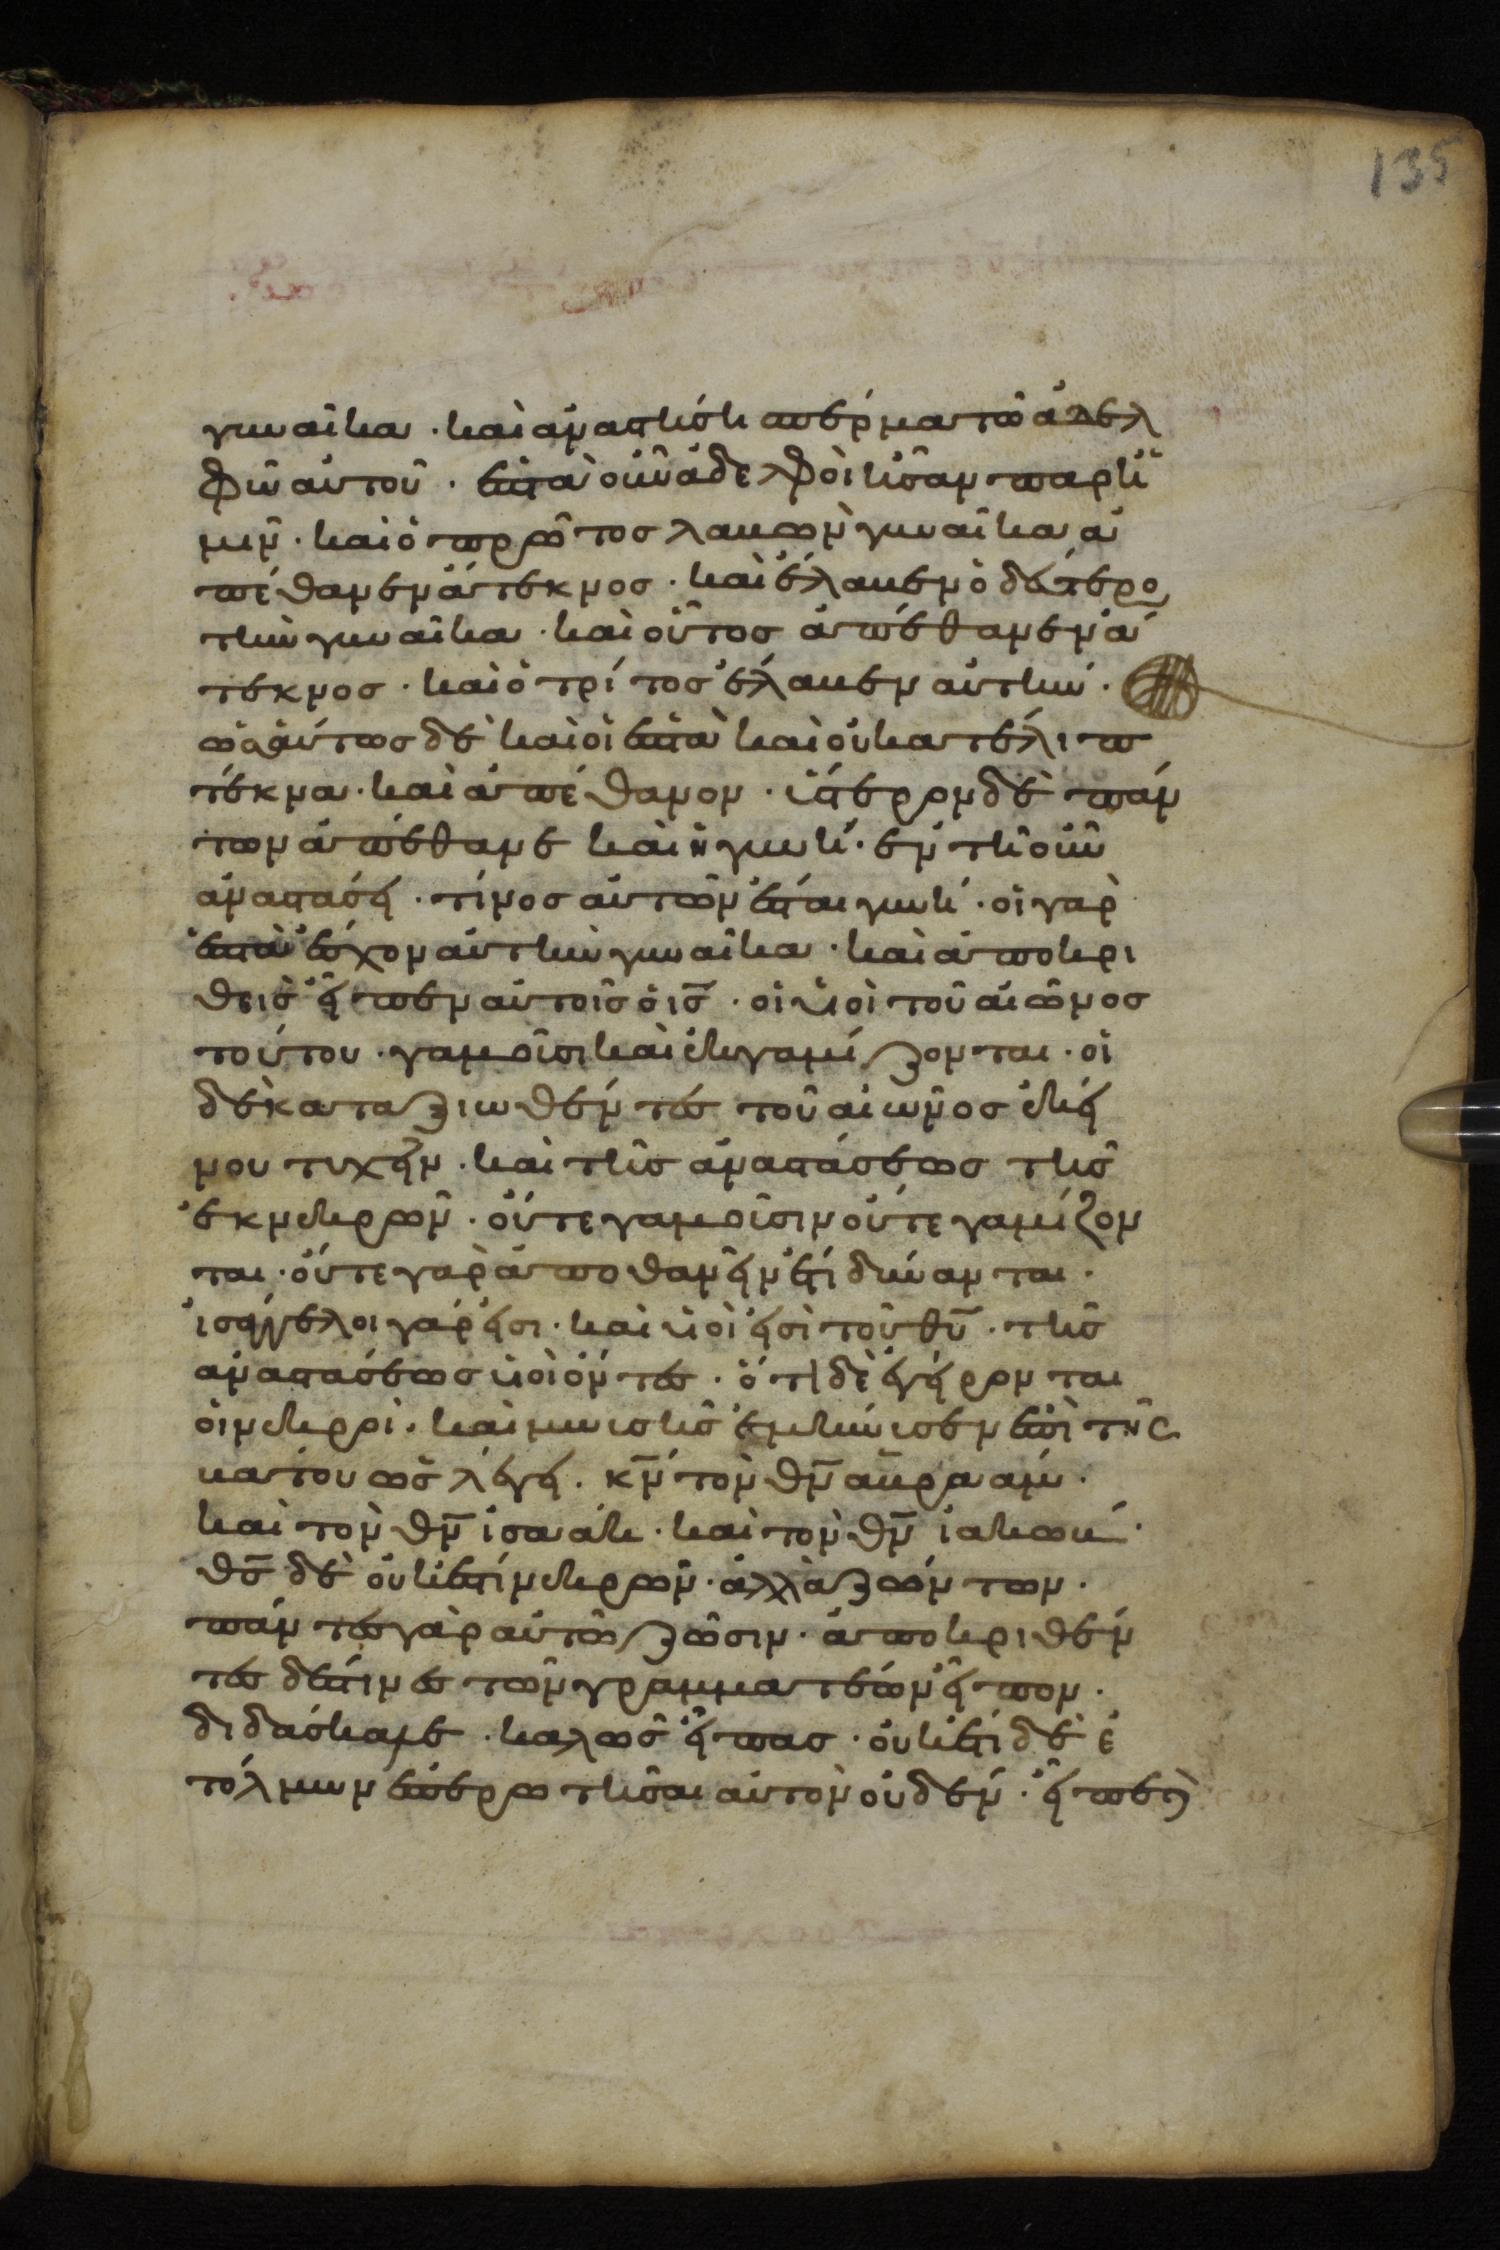 135
γυναῖκα · καὶ ἀναστήσει σπέρμα τῶ ἀδελ
φῶ αὐτοῦ · ἑπτὰ οὖν ἀδελφοὶ ἦσαν παρ' ἡ
μῖν · καὶ ὁ πρῶτος λαβὼν γυναῖκα ἀ
πέθανεν ἄτεκνος · καὶ ἔλαβεν ὁ δεύτερο
τὴν γυναῖκα · καὶ οὗτος ἀπέθανεν ἄ
τεκνος · καὶ ὁ τρίτος ἔλαβεν αὐτήν ·
ὡσαύτως δὲ καὶ οἱ ἑπτὰ καὶ οὐ κατέλιπ
τέκνα · καὶ ἀπέθανον · ὕστερον δὲ πάν
των ἀπέθανε καὶ ἡ γυνή · ἐν τῆ οὖν
ἀναστάσει · τίνος αὐτῶν ἔσται γυνή · οἱ γὰρ
ἑπτὰ ἔσχον αὐτὴν γυναῖκα · καὶ ἀποκρι
θεὶς εἶπεν αὐτοῖς ὁ ις̅ · οἱ υἱοὶ τοῦ αἰῶνος
τούτου · γαμοῦσι καὶ ἐκγαμίζονται · οἱ
δὲ καταξιωθέντες τοῦ αἰῶνος ἐκεί
νου τυχεῖν · καὶ τῆς ἀναστάσεως τῆς
ἐκ νεκρῶν · οὔτε γαμοῦσιν οὔτε γαμίζον
ται · οὔτε γὰρ ἀποθανεῖν ἔτι δύνανται ·
ἰσάγγελοι γάρ εἰσι · καὶ υἱοί εἰσι τοῦ θυ̅ · τῆς
ἀναστάσεως υἱοὶ ὄντες · ὅτι δὲ ἐγείρονται
οἱ νεκροὶ · καὶ μωισῆς ἐμήνυσεν ἐπὶ τῆς
βάτου ὡς λέγει · κν̅ τὸν θν̅ ἀβραάμ ·
καὶ τὸν θν̅ ἰσαάκ · καὶ τὸν θν̅ ἰακώβ ·
θς̅ δὲ οὐκ ἔστι νεκρῶν · ἀλλὰ ζώντων ·
πάντες γὰρ αὐτῶ ζῶσιν · ἀποκριθέν
τες δέ τινες τῶν γραμματέων εἶπον ·
διδάσκαλε · καλῶς εἶπας · οὐκ ἔτι δὲ ἐ
τόλμων ἐπερωτῆσαι αὐτὸν οὐδέν · εἶπε δὲ